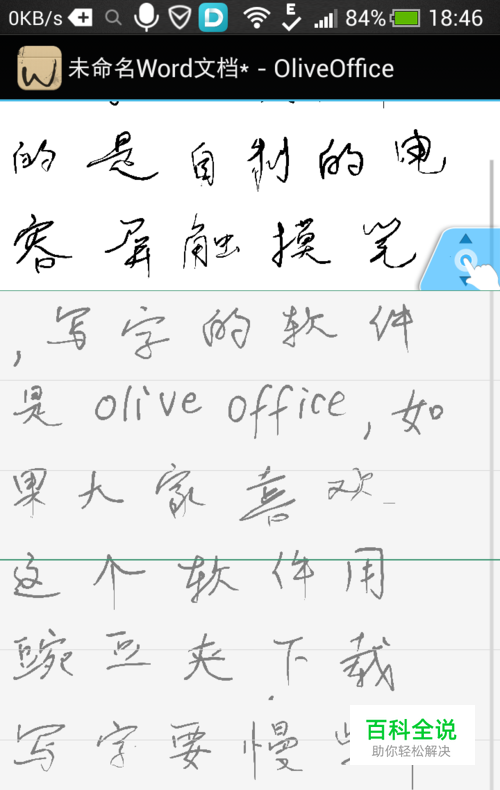 0KB/s 84% 18:46
未命名Word文档* - OliveOffice
的是自制的电
容屏触摸笔
，写字的软件
是 olive office，如
果大家喜欢
这个软件用
豌豆夹下载
写字要慢
百科全说
助你轻松解决